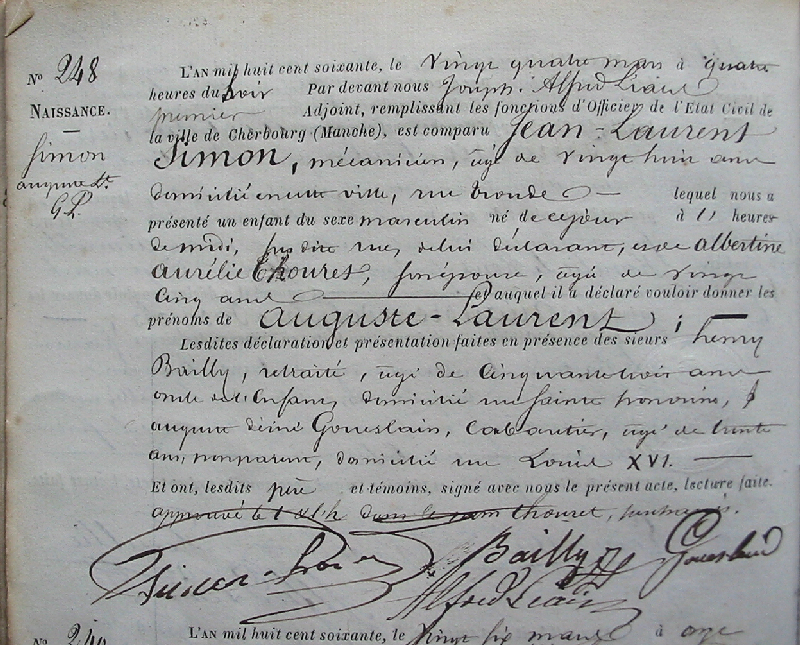 N° 248
NAISSANCE.
Simon
auguste Lt
G.P.
L'AN mil huit cent soixante, le vingt quatre mars à quatre
heures du soir Par devant nous Joseph Alfred Liais
premier Adjoint, remplissant les fonctions d'Officier de l'Etat Civil de
la ville de Cherbourg (Manche), est comparu Jean-Laurent
Simon, mécanicien, âgé de vingt huit ans
domicilié en cette ville, rue lequel nous a
présenté un enfant du sexe masculin né de ce jour à heures
de midi, susdite rue, de lui déclarant, et de albertine
aurélie Thouret, son épouse, âgée de vingt
cinq ans et auquel il a déclaré vouloir donner les
prénoms de auguste-Laurent ;
Lesdites déclaration et présentation faites en présence des sieurs henry
Bailly, retraité, âgé de cinquante trois ans
oncle de l'enfant, domicilié rue sainte honorine, &
auguste désiré Goueslain, cabaretier, âgé de trente
ans, non parent, domicilié rue Louis XVI.
Et ont, lesdits père et témoins, signé avec nous le présent acte, lecture faite.
approuvé le t & l'h dans le nom thouret,
Simon Bailly Goueslain
Alfred Liais
N° 249
L'AN mil huit cent soixante, le vingt six mars à onze